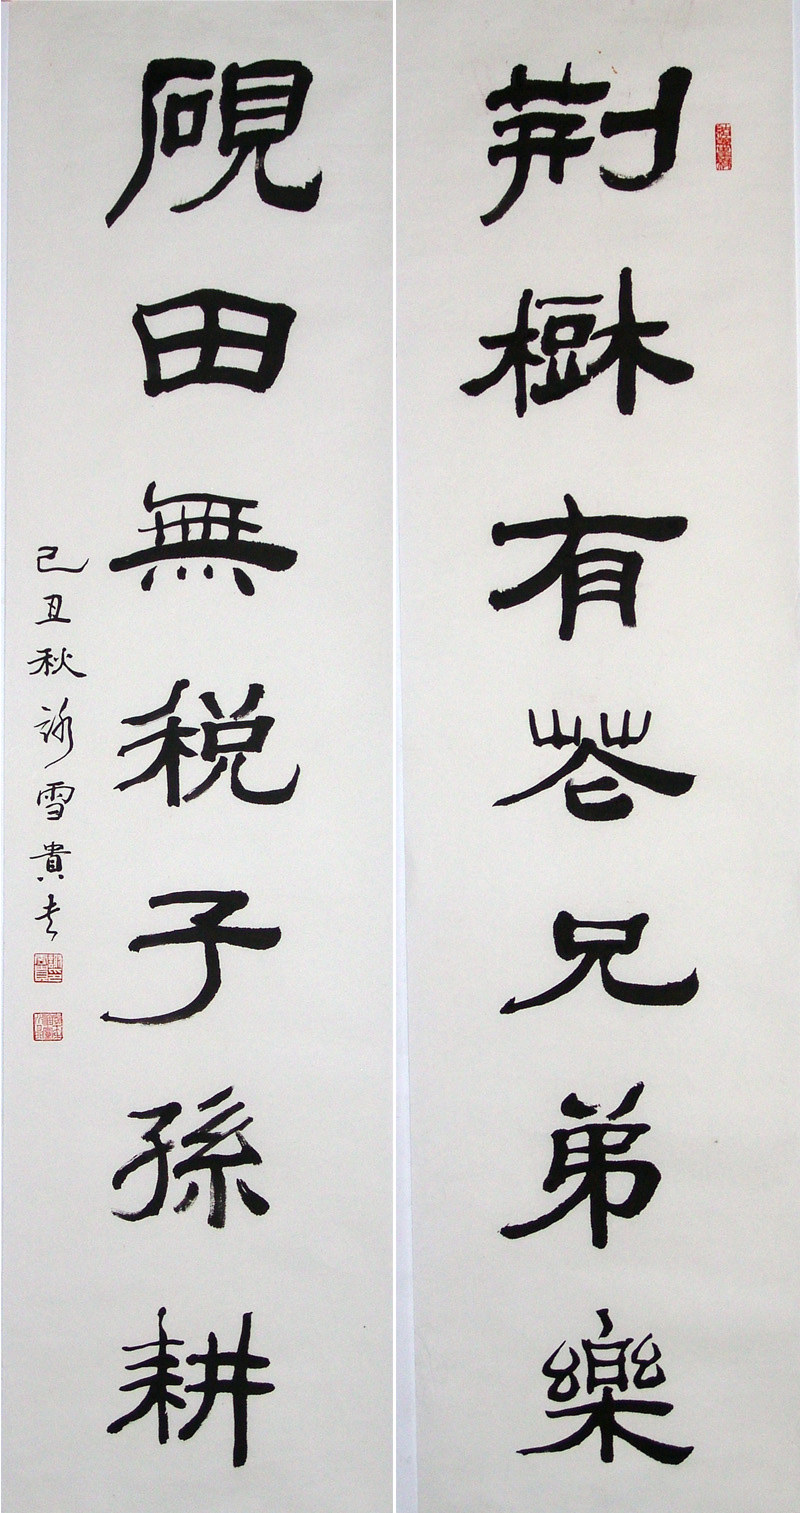 荆樹有花兄弟樂
硯田無税子孫耕
己丑秋詠雪貴夫